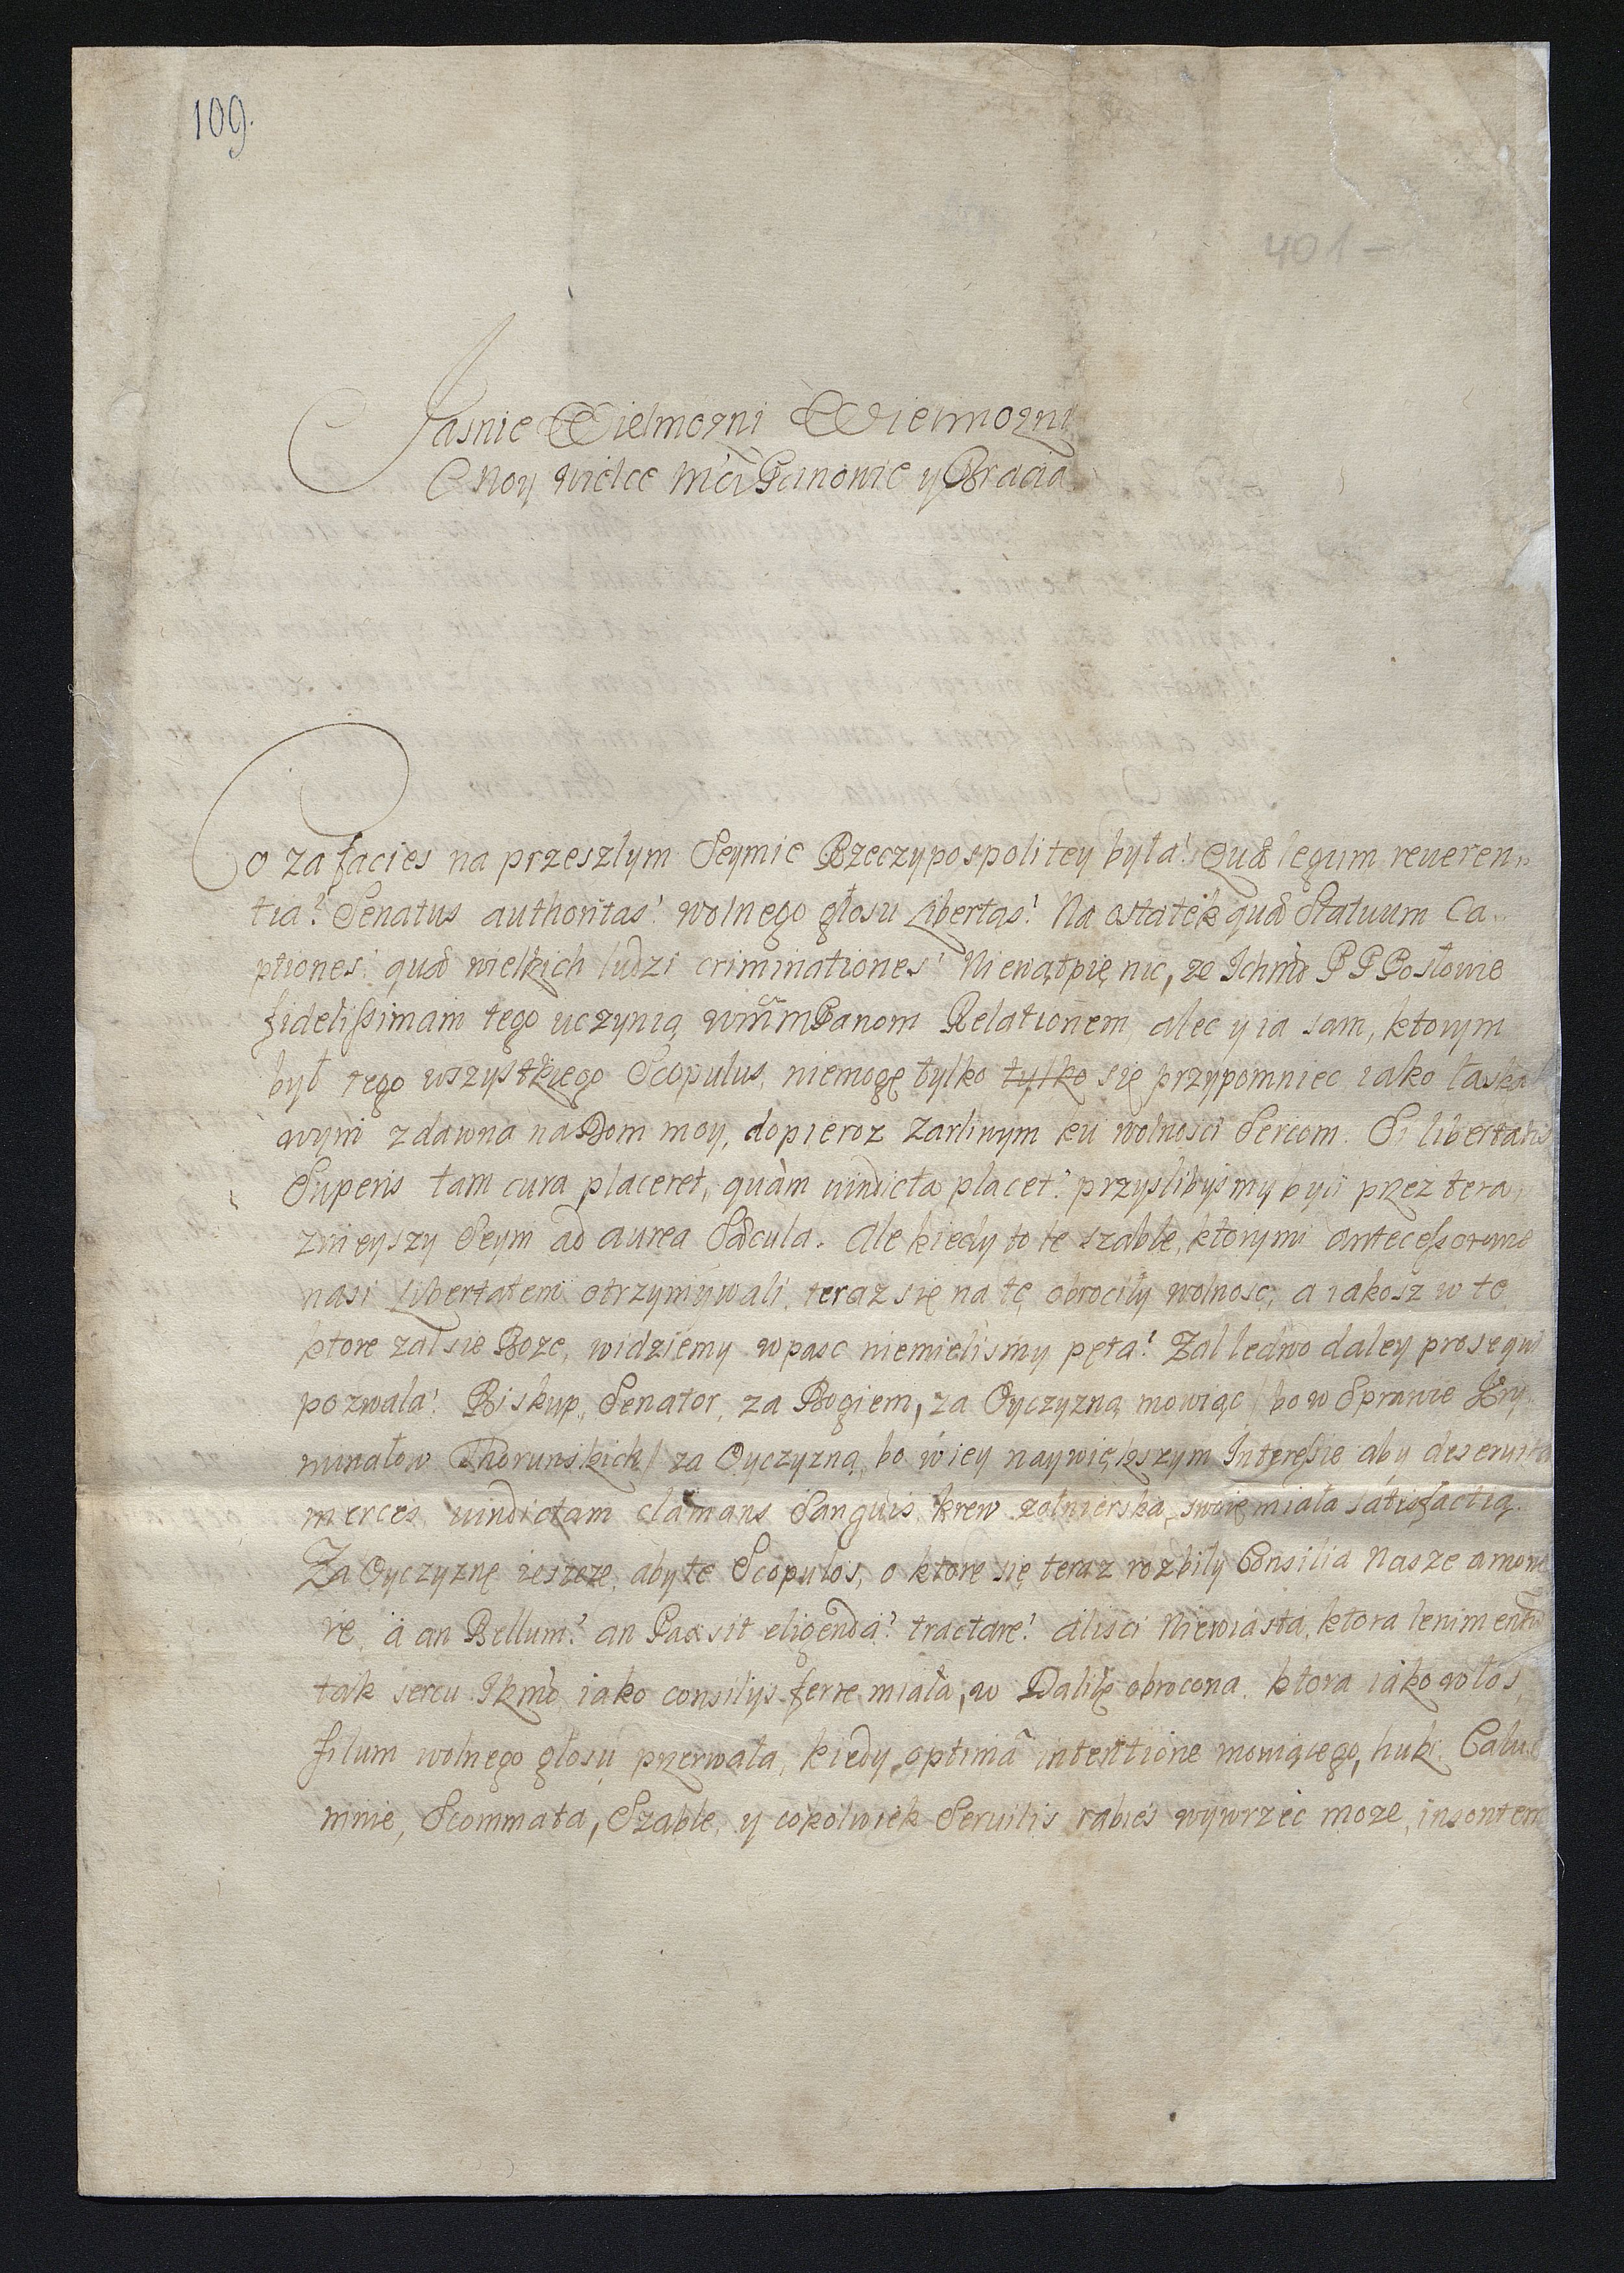 109.
401 -
Jasnie Wielmozni Wielmozni
Moy wielce Mci Panowie y Bracia
Co za facies na przeszlym Seymie Rzeczypospolitey była! Quæ legum reueren„
tia? Senatus authoritas! wolnego głosu Libertas! Na ostatek quæ Statuum Ca„
ptiones! quæ wielkich ludzi criminationes! Niewątpię nic, ze Ichmć P P Posłowie
fidelissimam tego uczynią WmmPanom Relationem, alec y ia sam, ktorym
był tego wszystkiego Scopulus, niemogę tylko tylko się przypomniec iako łaska
wym zdawna na Dom moy, dopieroz zarliwym ku wolnosci Sercom. Si libertatis
Superis tam cura placeret, quàm uindicta placet! przyslibysmy byli przez tera„
zmieyszy Seym ad aurea Sæcula. Ale kiedy to te szable, ktorymi antecessorowie
nasi Libertatem otrzymywali, teraz się na tę obrociły wolnosc, a iakosz w te
ktore zal sie Boze, widziemy wpasc niemielismy pęta! Zal ledwo daley prosequi
pozwala! Biskup, Senator, za Bogiem, za Oyczyzną mowiąc / bo w Sprawie Kry„
minałow Thorunskich / za Oyczyzną, bo w iey naywiększym Interessie aby deseruita
merces, uindictam clamans Sanguis, krew zołnierska, swoię miała satisfactią.
Za Oyczyznę ieszcze, aby te Scopulos, o ktore się teraz rozbiły Consilia Nasze amoue
re, a an Bellum? an Pax sit eligenda? tractare! alisci Niewiasta, ktora lenimentum
tak sercu Jkmć, iako consilijs ferre miała, w Dalilę obrocona, ktora iako włos,
filum wolnego głosu przerwała, kiedy optimâ intentione mowiącego, huki, Calu
mnie, Scommata, Szable, y cokolwiek Seruilis rabies wywrzec moze, insontem